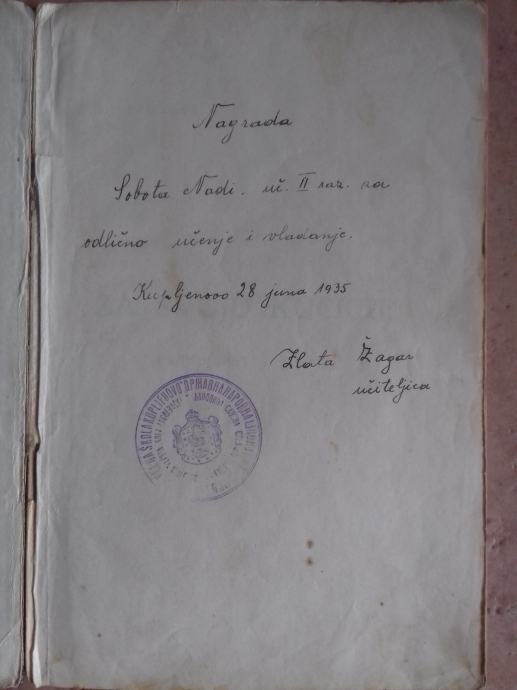 Nagrada
Sobota Nadi. uč. II raz. za
odlično učenje i vladanje.
Kupljenovo 28 juna 1935
Zlata Žagar
učiteljica
ŠKOLA KUPLJENOVO ДРЖАВНА НАРОДНА